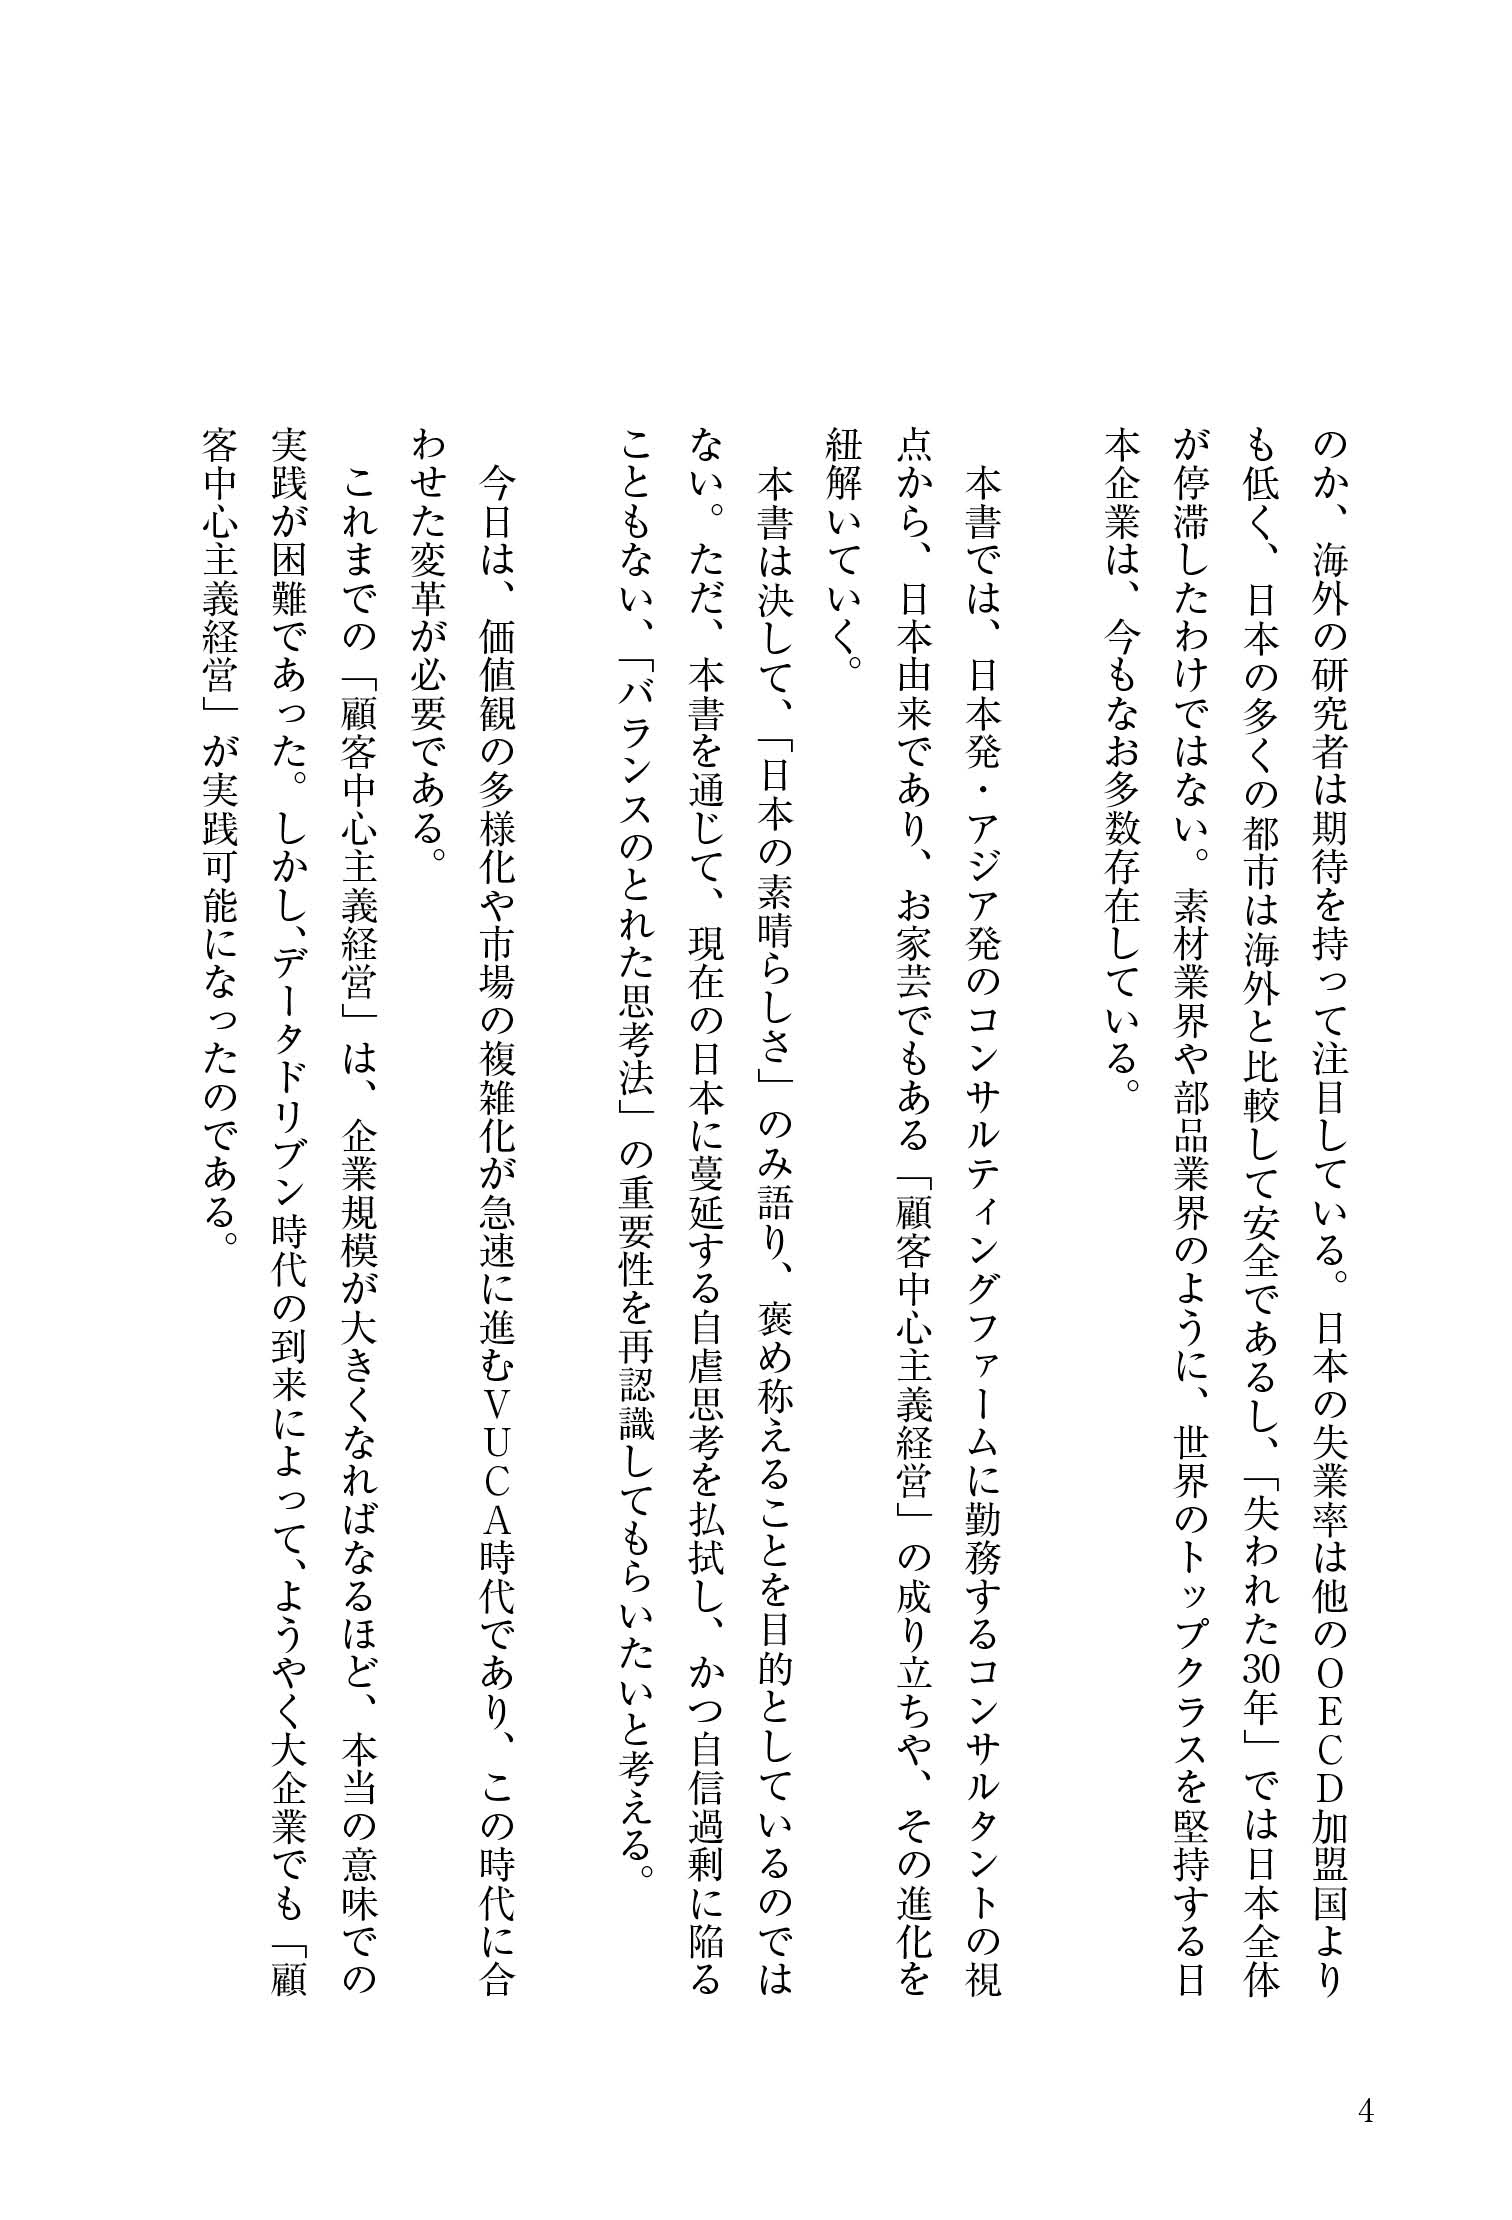 のか、海外の研究者は期待を持って注目している。日本の失業率は他のＯＥＣＤ加盟国より
も低く、日本の多くの都市は海外と比較して安全であるし、「失われた30年」では日本全体
が停滞したわけではない。素材業界や部品業界のように、世界のトップクラスを堅持する日
本企業は、今もなお多数存在している。
　本書では、日本発・アジア発のコンサルティングファームに勤務するコンサルタントの視
点から、日本由来であり、お家芸でもある「顧客中心主義経営」の成り立ちや、その進化を
紐解いていく。
　本書は決して、「日本の素晴らしさ」のみ語り、褒め称えることを目的としているのでは
ない。ただ、本書を通じて、現在の日本に蔓延する自虐思考を払拭し、かつ自信過剰に陥る
こともない、「バランスのとれた思考法」の重要性を再認識してもらいたいと考える。
　今日は、価値観の多様化や市場の複雑化が急速に進むＶＵＣＡ時代であり、この時代に合
わせた変革が必要である。
　これまでの「顧客中心主義経営」は、企業規模が大きくなればなるほど、本当の意味での
実践が困難であった。しかし、データドリブン時代の到来によって、ようやく大企業でも「顧
客中心主義経営」が実践可能になったのである。
4